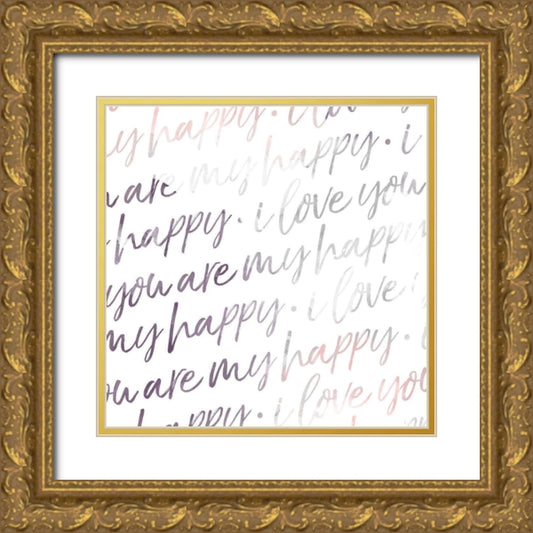 my happy · i love
are my happy · i
are
happy · i love you
you are my happy
my happy · i love i
you are my happy · i
happy · i love you